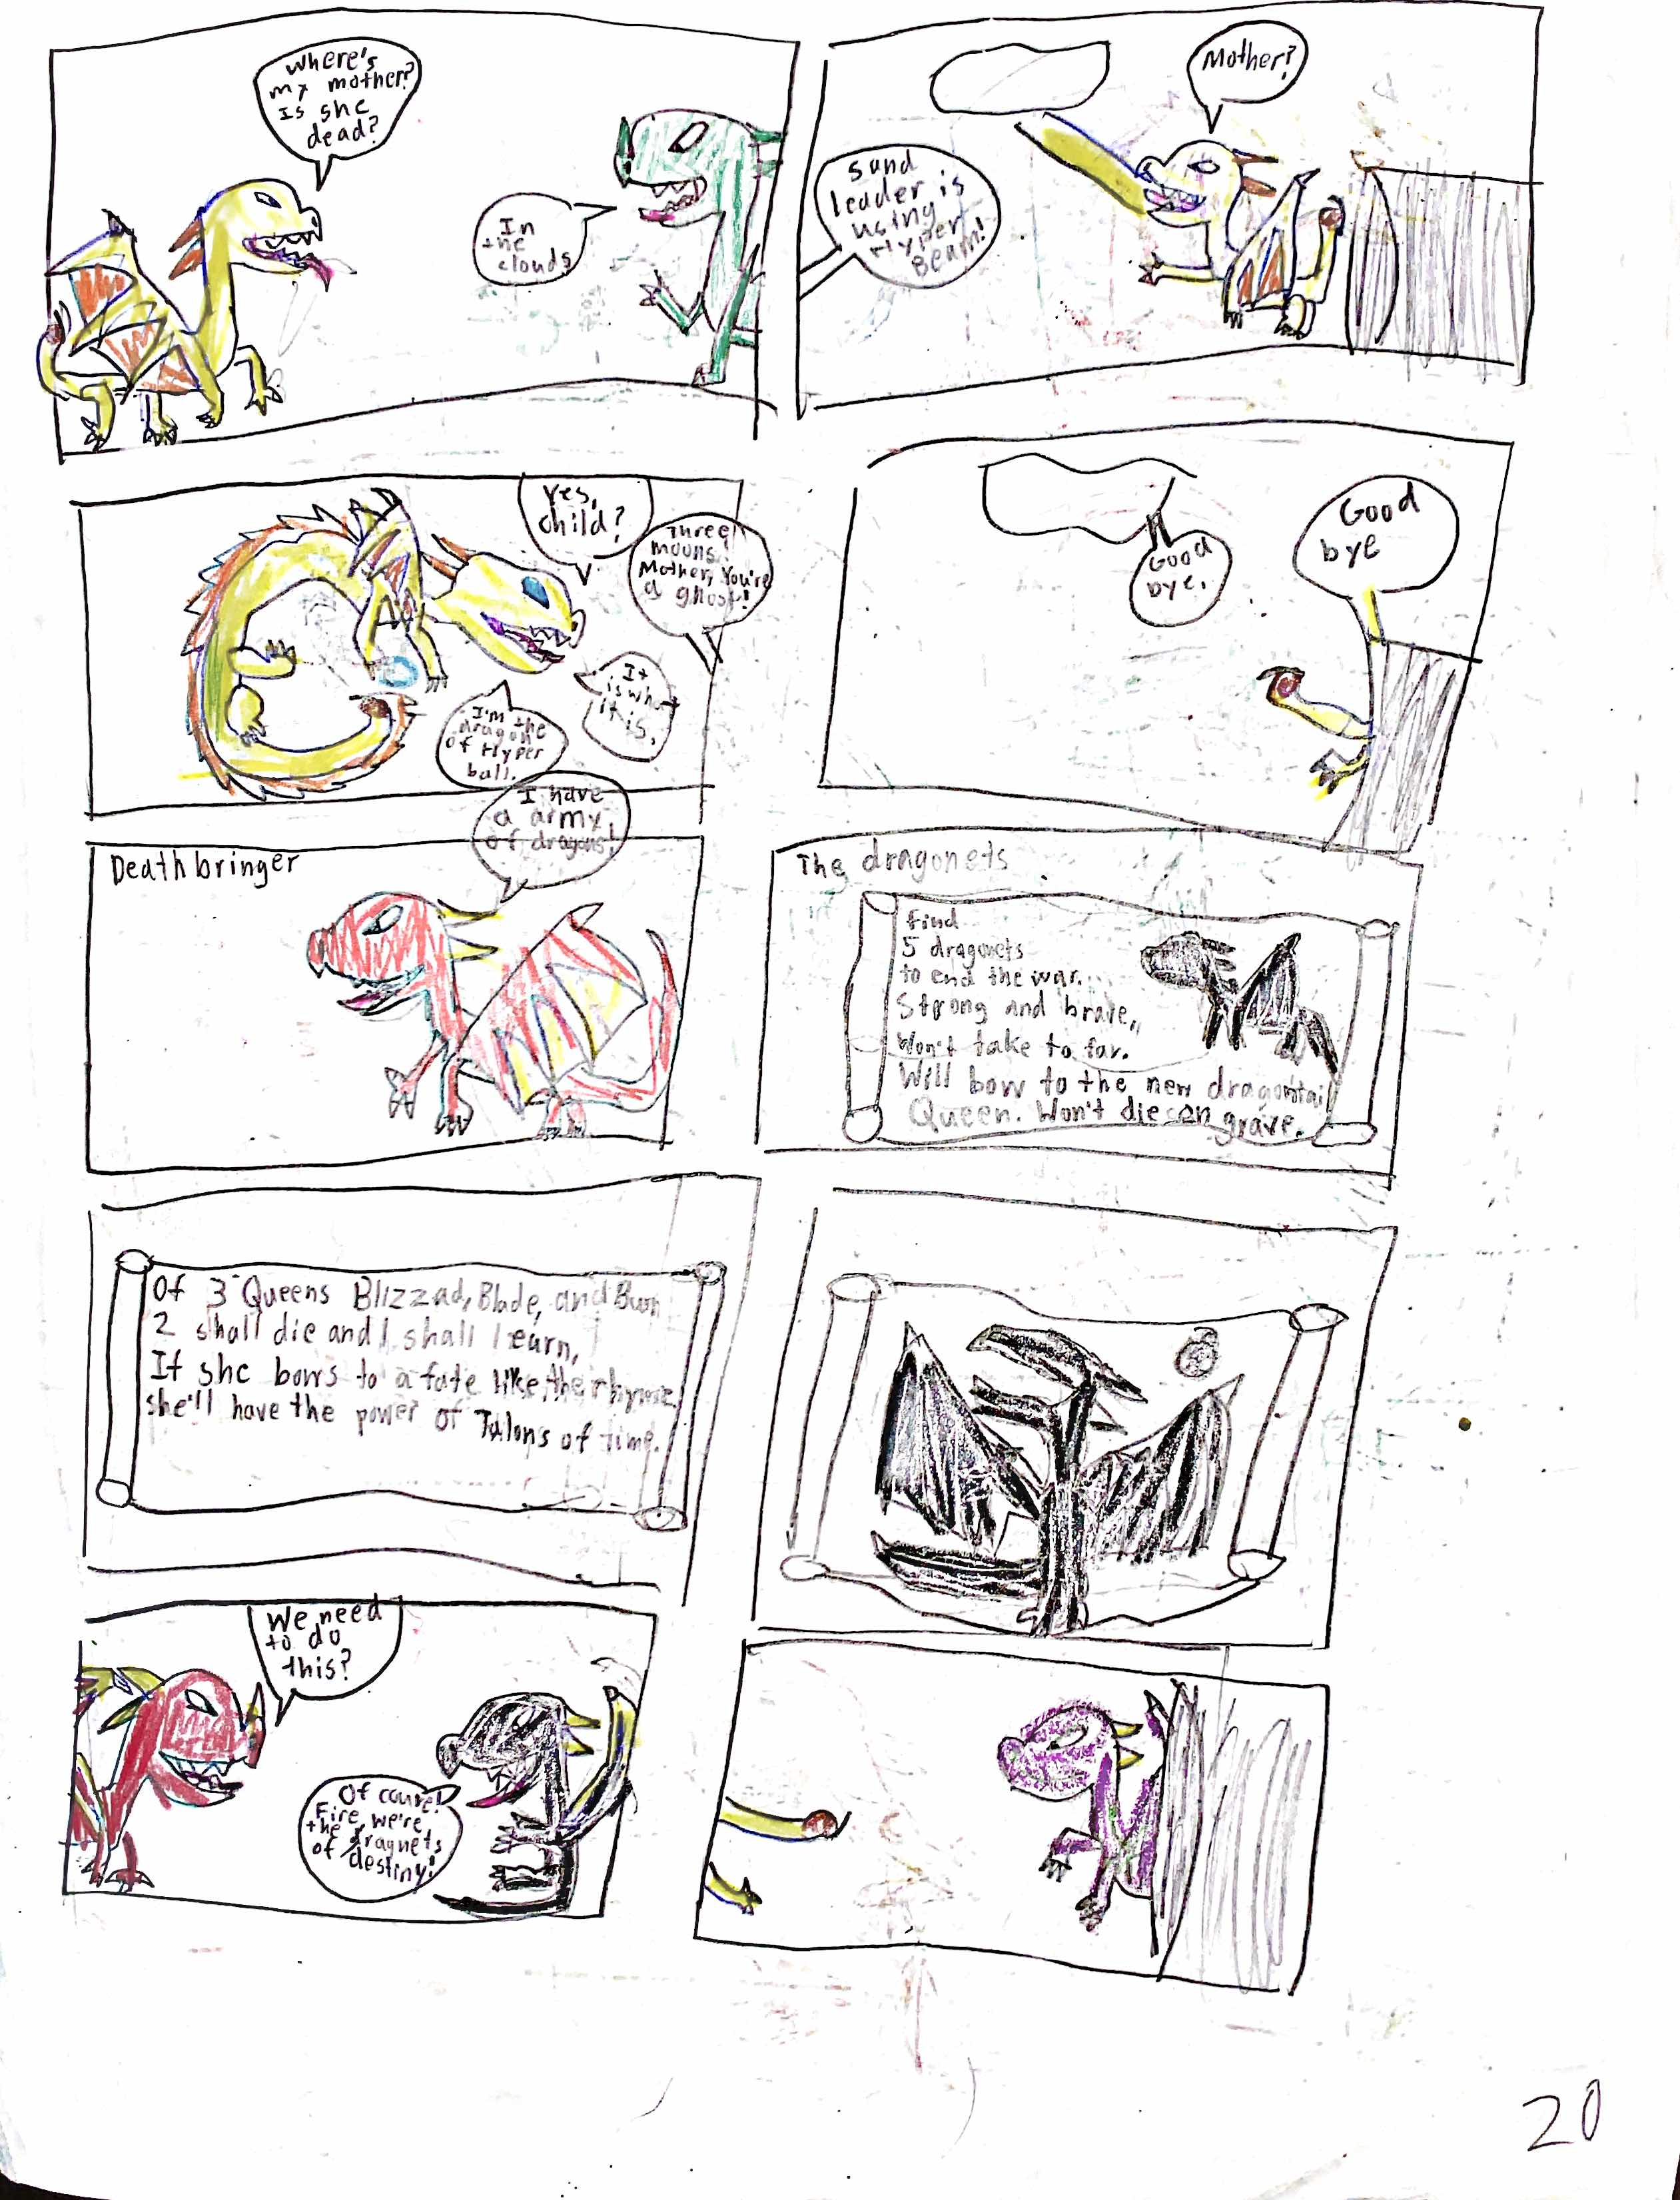 Where's
my mother?
Is she
dead?
In
the
clouds
Mother?
Sand
leader is
using
Hyper
Beam!
Yes,
child?
Three
moons!
Mother, You're
a ghost!
It
is what
it is.
I'm the
dragon
of Hyper
ball.
Good
bye.
Good
bye
I have
a army
of dragons!
Deathbringer
The dragonets
Find
5 dragonets
to end the war.
Strong and brave,
Won't take to far.
Will bow to the new dragontail
Queen. Won't die on grave.
Of 3 Queens Blizzad, Blade, and Burn
2 shall die and 1 shall learn,
If she bows to a fate like the rhyme
she'll have the power of Talons of time.
We need
to do
this?
Of coure!
Fire, we're
the dragnets
of destiny!
20